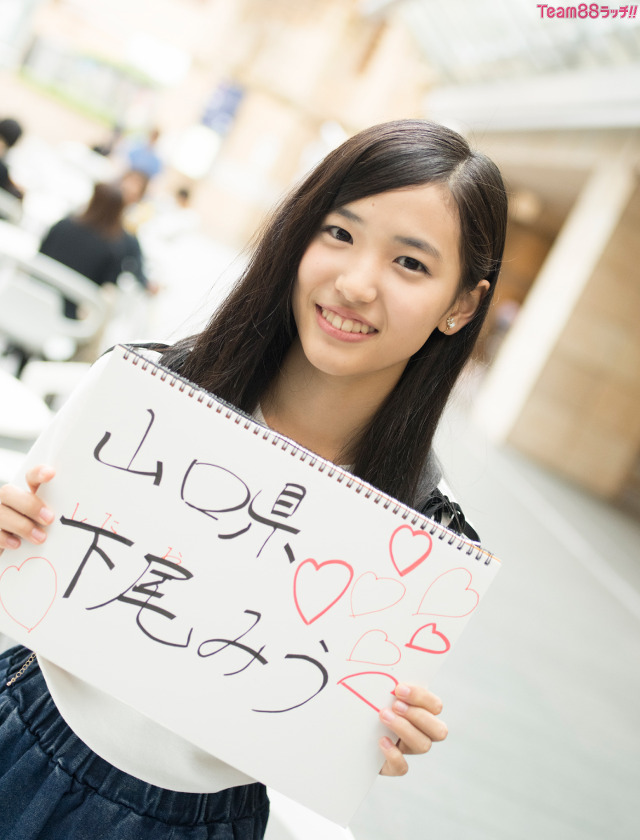 Team88ラッチ!!
山口県
しも お
下尾みう